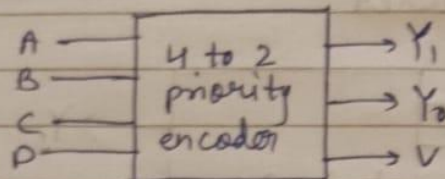 A
B
C
D
4 to 2
priority
encoder
Y₁
Y₀
V